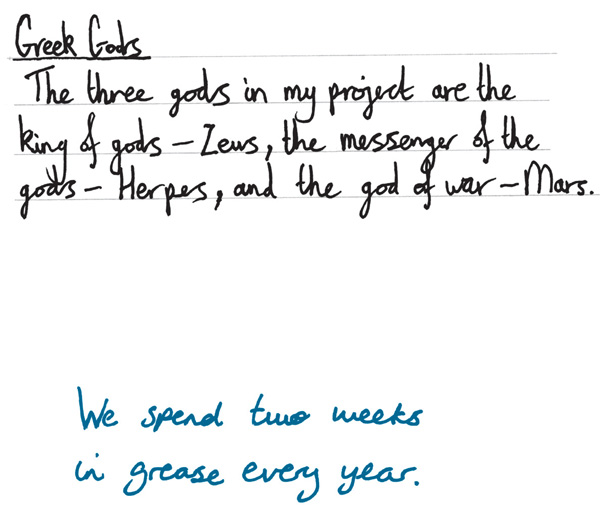 Greek Gods
The three gods in my project are the
king of gods – Zeus, the messenger of the
gods – Herpes, and the god of war – Mars.
We spend two weeks
in grease every year.